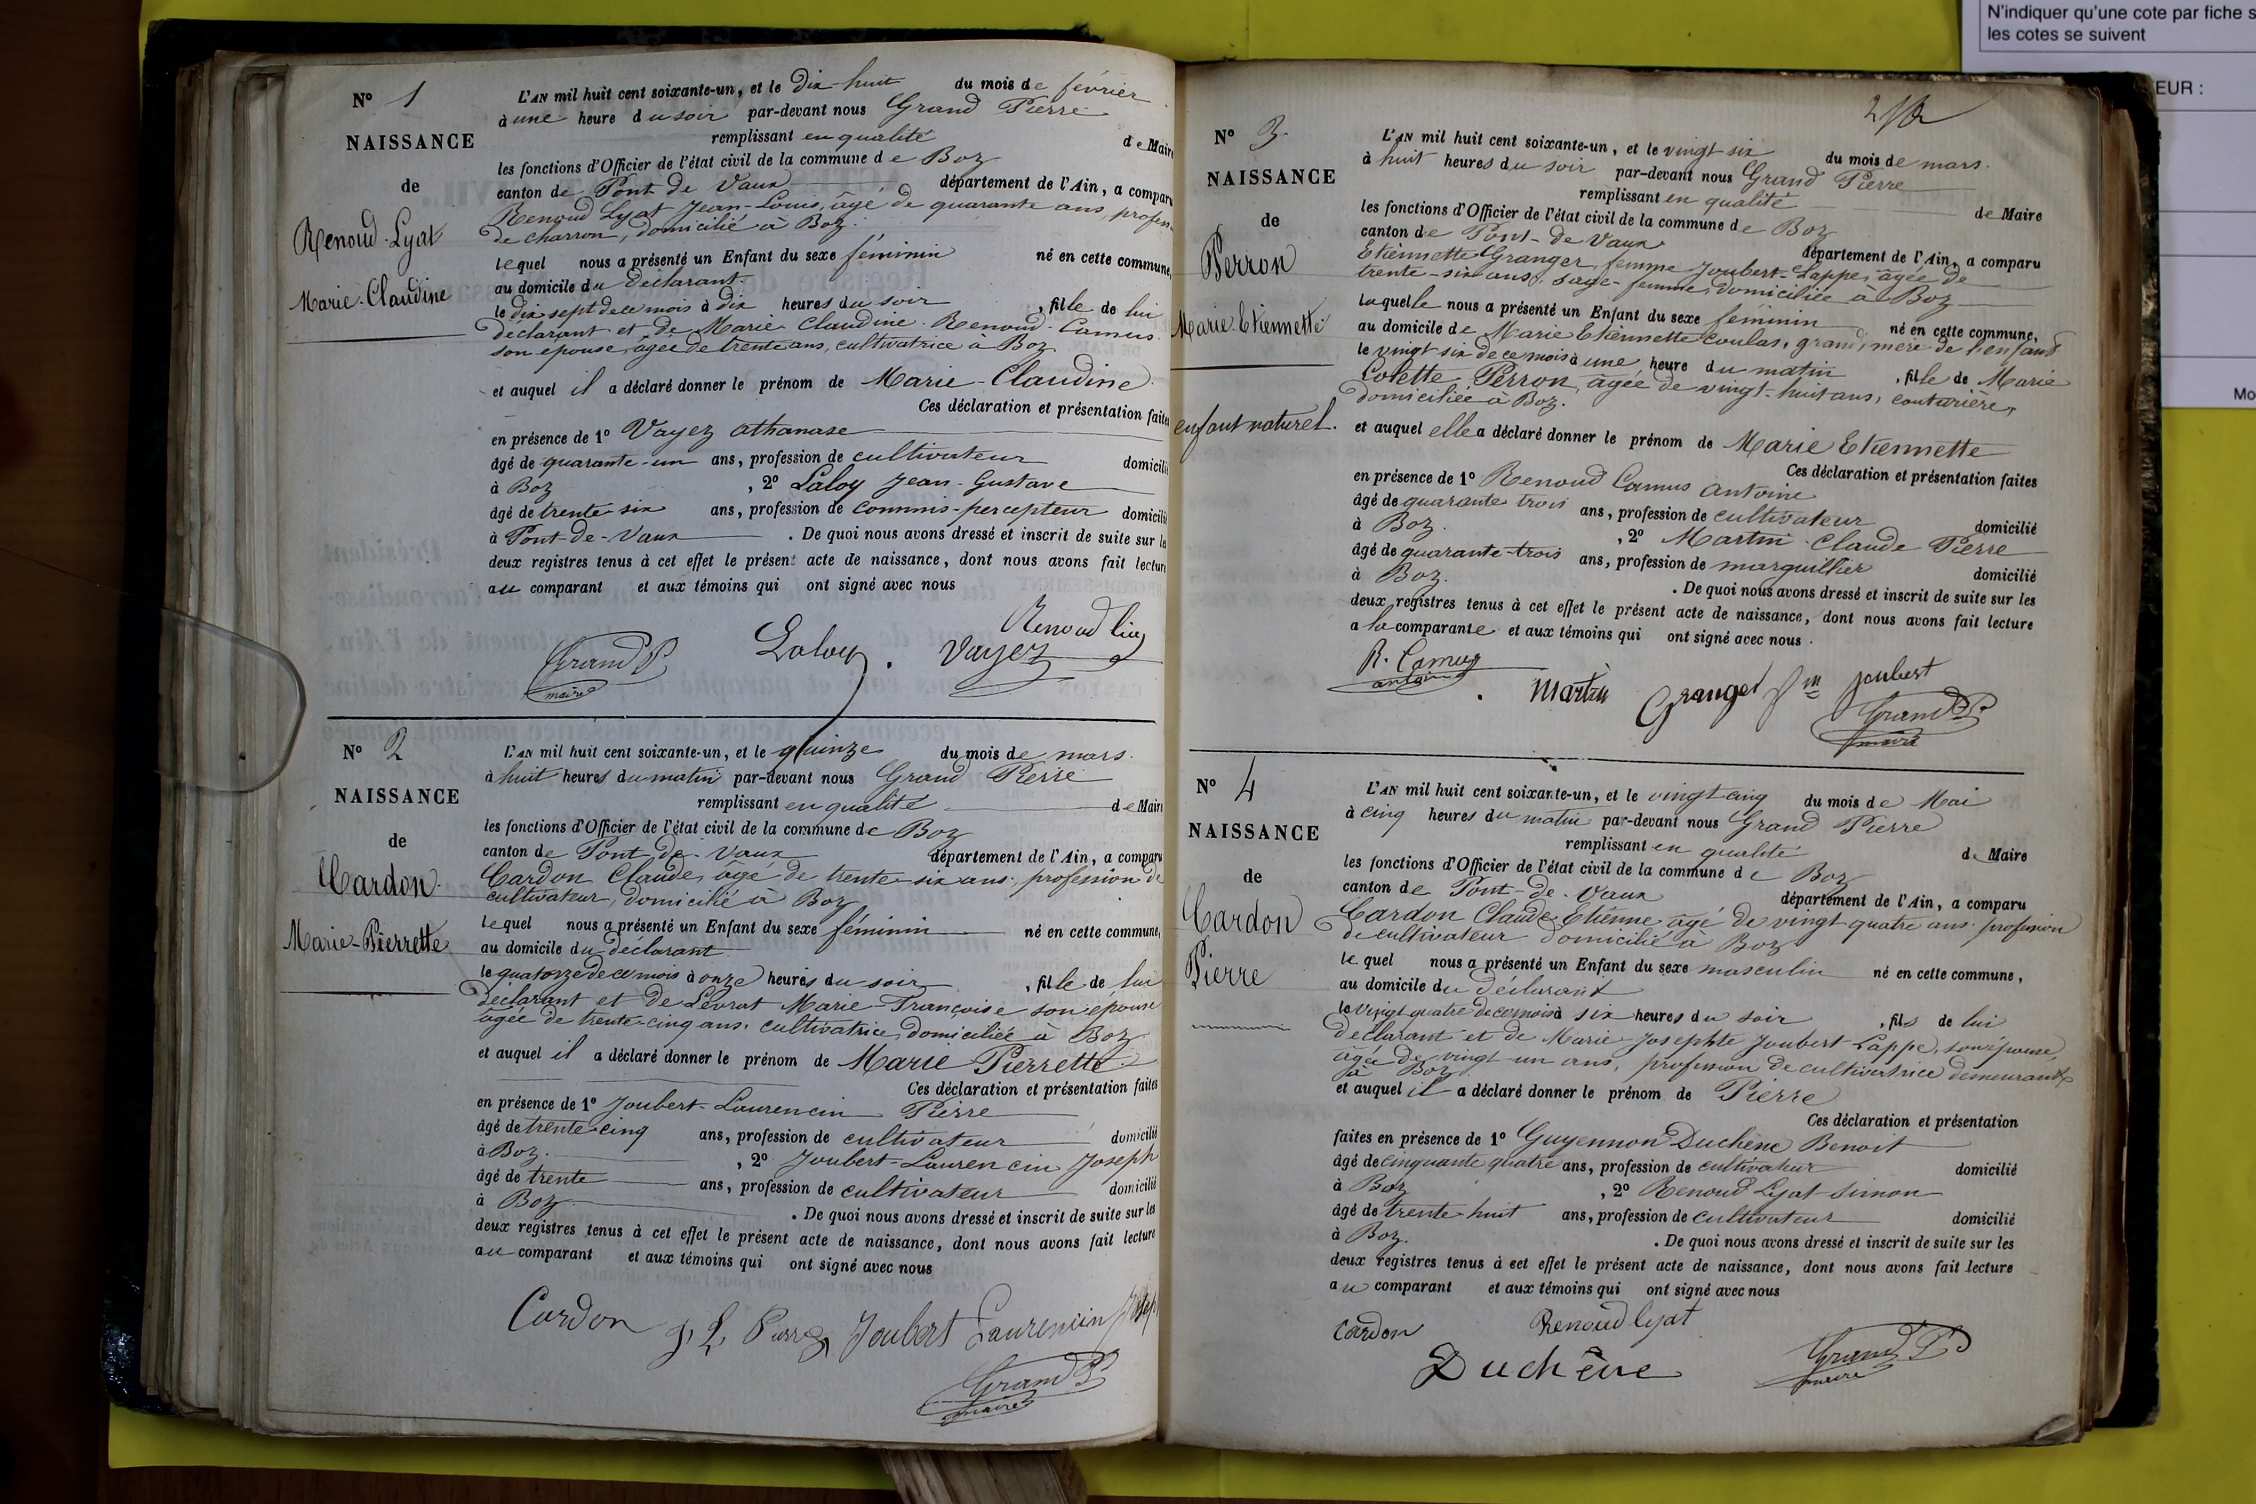 N'indiquer qu'une cote par fiche s
les cotes se suivent
EUR :
Mo
N° 1
NAISSANCE
de
Renoud-Lyat
Marie-Claudine
L'AN mil huit cent soixante-un, et le Dix-huit du mois de février
à une heure du soir par-devant nous Grand Pierre
remplissant en qualité de Maire
les fonctions d'Officier de l'état civil de la commune de Boz
canton de Pont de Vaux département de l'Ain, a comparu
Renoud Lyat Jean-Louis, âgé de quarante ans, profession
de charron, domicilié à Boz.
lequel nous a présenté un Enfant du sexe féminin né en cette commune,
au domicile du déclarant.
le dix sept de ce mois à dix heures du soir, fille de lui
déclarant et de Marie Claudine Renoud-Camus
son épouse, âgée de trente ans, cultivatrice à Boz.
et auquel il a déclaré donner le prénom de Marie-Claudine.
Ces déclaration et présentation faites
en présence de 1° Vayez athanase
âgé de quarante-un ans, profession de cultivateur domicilié
à Boz , 2° Laloy Jean-Gustave
âgé de trente six ans, profession de commis-percepteur domicilié
à Pont-de-Vaux . De quoi nous avons dressé et inscrit de suite sur les
deux registres tenus à cet effet le présent acte de naissance, dont nous avons fait lecture
au comparant et aux témoins qui ont signé avec nous
Renoud
Grand P
maire
Laloy. Vayez
N° 2
NAISSANCE
de
Cardon
Marie-Pierrette
L'AN mil huit cent soixante-un, et le quinze du mois de mars.
à huit heures du matin par-devant nous Grand Pierre
remplissant en qualité de Maire
les fonctions d'Officier de l'état civil de la commune de Boz
canton de Pont-de-Vaux département de l'Ain, a comparu
Cardon Claude, âgé de trente-six ans, profession de
cultivateur, domicilié à Boz
lequel nous a présenté un Enfant du sexe féminin né en cette commune,
au domicile du déclarant
le quatorze de ce mois à onze heures du soir, fille de lui
déclarant et de Levrat Marie-Françoise son épouse
âgée de trente-cinq ans, cultivatrice, domiciliée à Boz
et auquel il a déclaré donner le prénom de Marie Pierrette
Ces déclaration et présentation faites
en présence de 1° Joubert-Laurencin Pierre
âgé de trente-cinq ans, profession de cultivateur domicilié
à Boz. , 2° Joubert-Laurencin Joseph
âgé de trente ans, profession de cultivateur domicilié
à Boz . De quoi nous avons dressé et inscrit de suite sur les
deux registres tenus à cet effet le présent acte de naissance, dont nous avons fait lecture
au comparant et aux témoins qui ont signé avec nous
Cardon J. L. Pierre Joubert Laurencin
Grand P
maire
N° 3.
NAISSANCE
de
Perron
Marie Etiennette
enfant naturel.
L'AN mil huit cent soixante-un, et le vingt six du mois de mars.
à huit heures du soir par-devant nous Grand Pierre
remplissant en qualité de Maire
les fonctions d'Officier de l'état civil de la commune de Boz
canton de Pont-de-Vaux département de l'Ain, a comparu
Etiennette Granger, femme Joubert-Lappe, âgée de
trente-six ans, sage-femme, domiciliée à Boz
laquelle nous a présenté un Enfant du sexe féminin né en cette commune,
au domicile de Marie Etiennette Coulas, grand'mère de l'enfant
le vingt six de ce mois à une heure du matin, fille de Marie
Colette Perron, âgée de vingt-huit ans, couturière,
domiciliée à Boz.
et auquel elle a déclaré donner le prénom de Marie Etiennette
Ces déclaration et présentation faites
en présence de 1° Renoud Camus Antoine
âgé de quarante trois ans, profession de cultivateur domicilié
à Boz. , 2° Martin Claude Pierre
âgé de quarante-trois ans, profession de marguillier domicilié
à Boz. . De quoi nous avons dressé et inscrit de suite sur les
deux registres tenus à cet effet le présent acte de naissance, dont nous avons fait lecture
a la comparante et aux témoins qui ont signé avec nous.
R. Camus
antoine
Martin Granger fm joubert
Grand P
maire
N° 4
NAISSANCE
de
Cardon
Pierre
L'AN mil huit cent soixante-un, et le vingt cinq du mois de Mai
à cinq heures du matin par-devant nous Grand Pierre
remplissant en qualité de Maire
les fonctions d'Officier de l'état civil de la commune de Boz
canton de Pont-de-Vaux département de l'Ain, a comparu
Cardon Claude Etienne âgé de vingt quatre ans profession
de cultivateur domicilié à Boz
lequel nous a présenté un Enfant du sexe masculin né en cette commune,
au domicile du déclarant
le vingt quatre de ce mois à six heures du soir, fils de lui
déclarant et de Marie-Josephte Joubert Lappe, son épouse,
âgée de vingt un ans, profession de cultivatrice demeurant
à Boz
et auquel il a déclaré donner le prénom de Pierre
Ces déclaration et présentation
faites en présence de 1° Guyennon Duchêne Benoit
âgé de cinquante quatre ans, profession de cultivateur domicilié
à Boz , 2° Renoud Lyat Simon
âgé de trente huit ans, profession de cultivateur domicilié
à Boz. . De quoi nous avons dressé et inscrit de suite sur les
deux registres tenus à cet effet le présent acte de naissance, dont nous avons fait lecture
au comparant et aux témoins qui ont signé avec nous
Cardon Renoud lyat
Duchêne
Grand P
maire